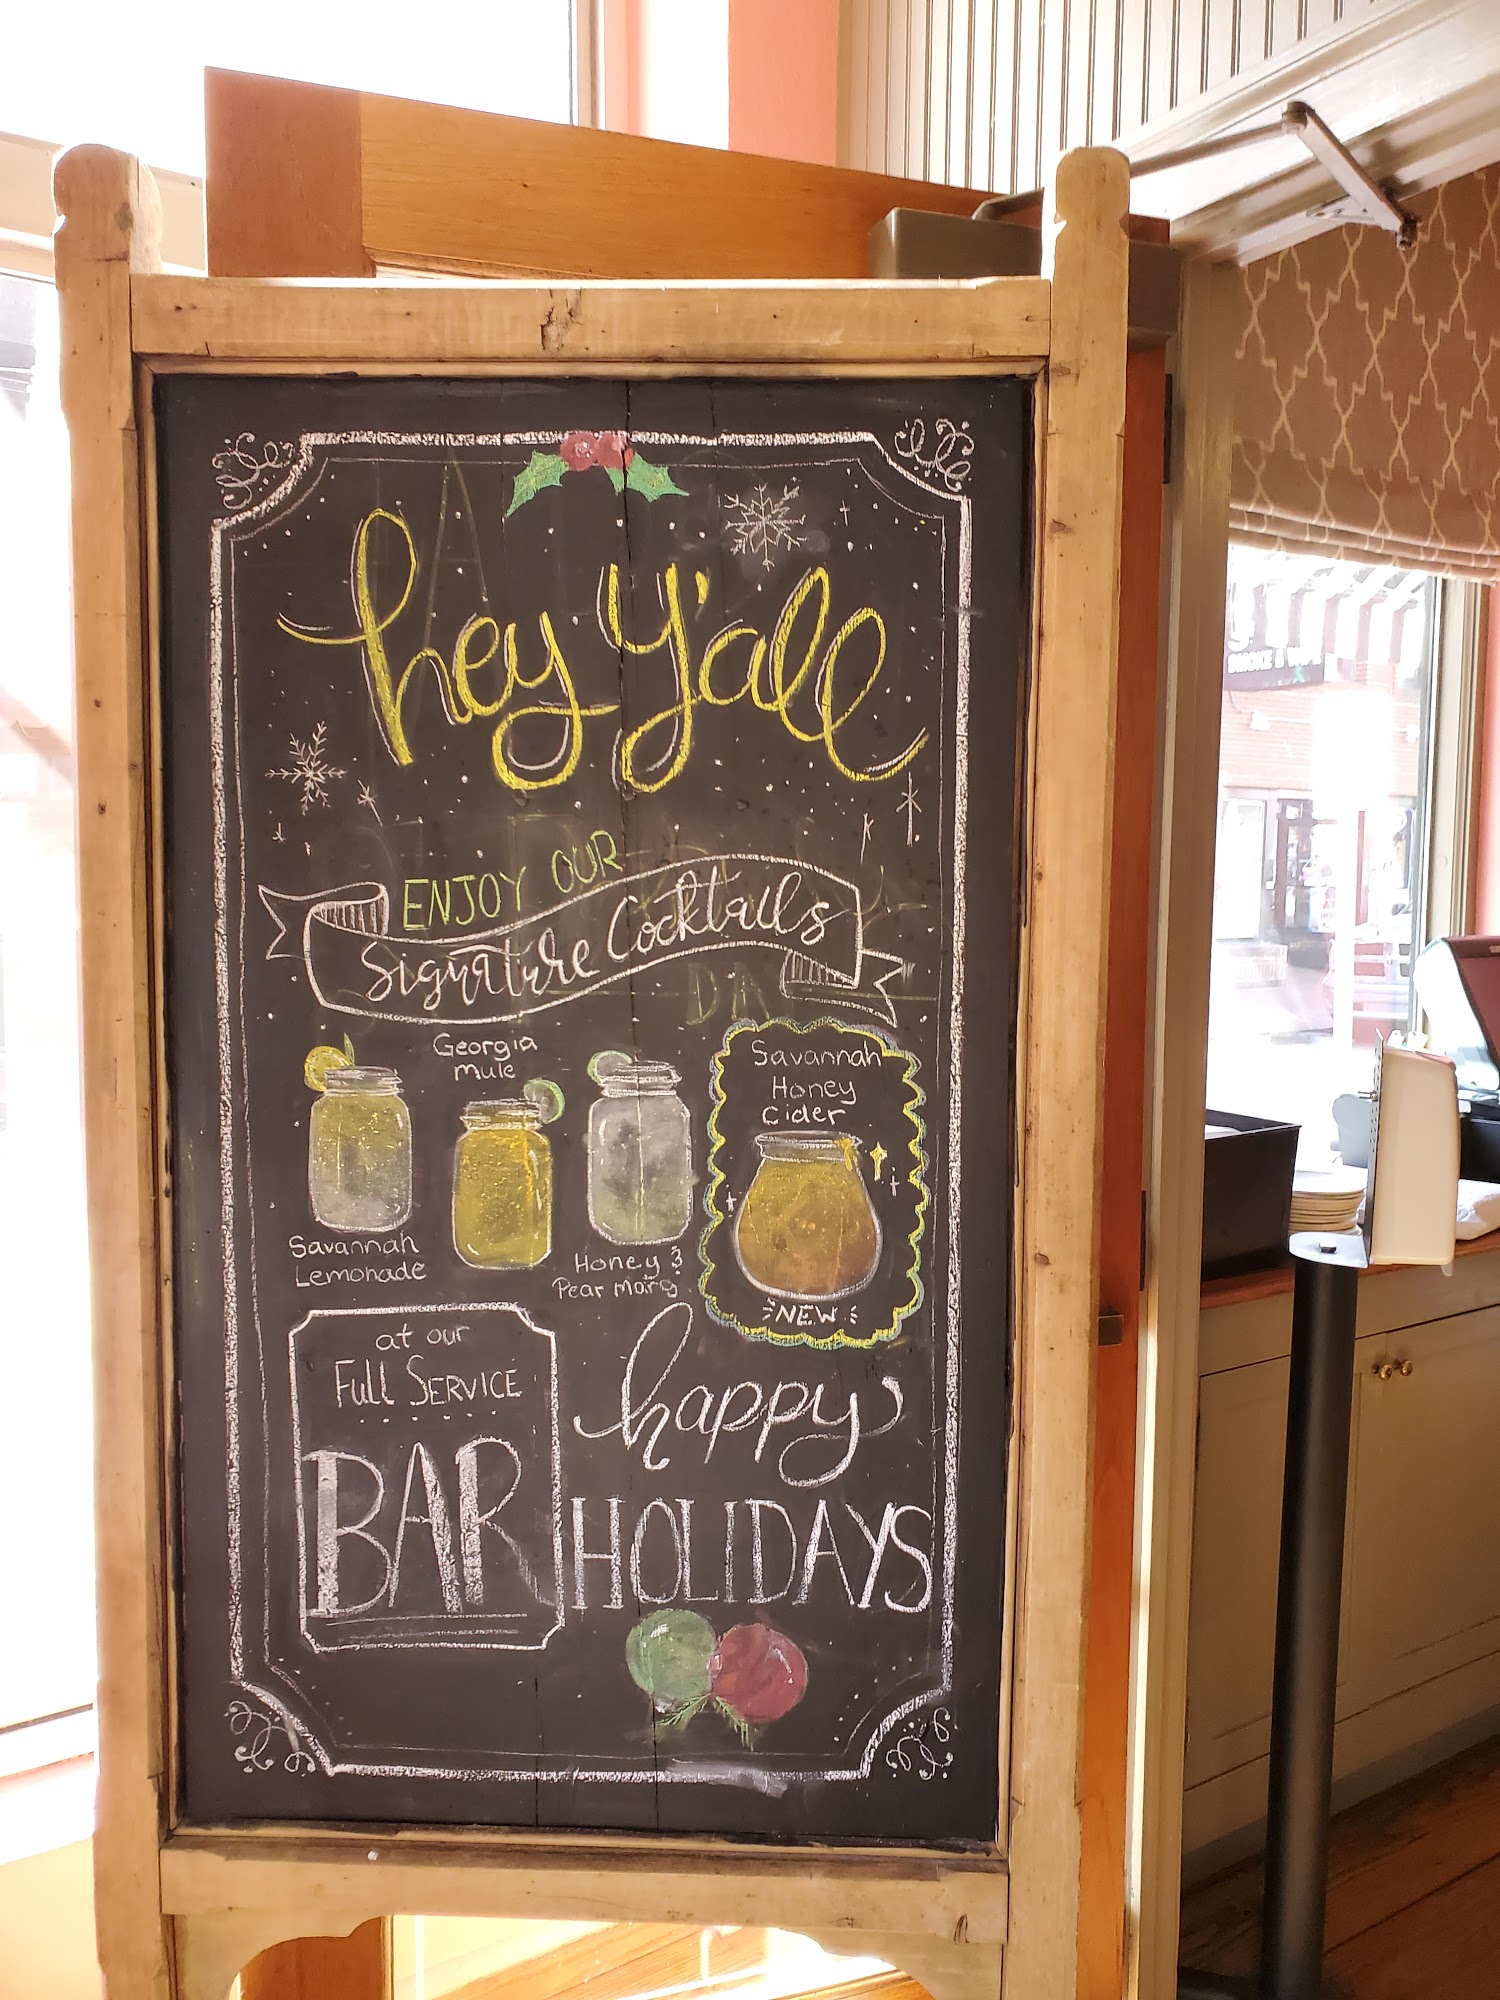 hey y'all
ENJOY OUR
Signature Cocktails
DA
Georgia
mule
Savannah
Honey
Cider
Savannah
Lemonade
Honey &
Pear Marg
NEW
at our
Full SERVICE
BAR
happy
HOLIDAYS
SMOKE &